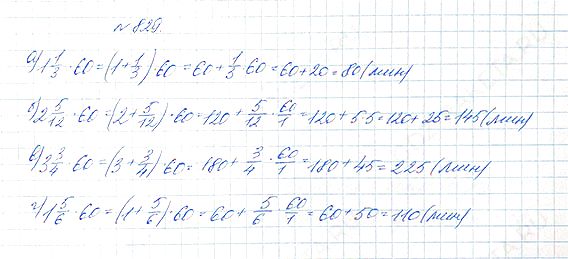 № 829.
а) 1 1/3 · 60 = (1 + 1/3) · 60 = 60 + 1/3 · 60 = 60 + 20 = 80 (мин)
б) 2 5/12 · 60 = (2 + 5/12) · 60 = 120 + 5/12 · 60/1 = 120 + 5·5 = 120 + 25 = 145 (мин)
в) 3 3/4 · 60 = (3 + 3/4) · 60 = 180 + 3/4 · 60/1 = 180 + 45 = 225 (мин)
г) 1 5/6 · 60 = (1 + 5/6) · 60 = 60 + 5/6 · 60/1 = 60 + 50 = 110 (мин)